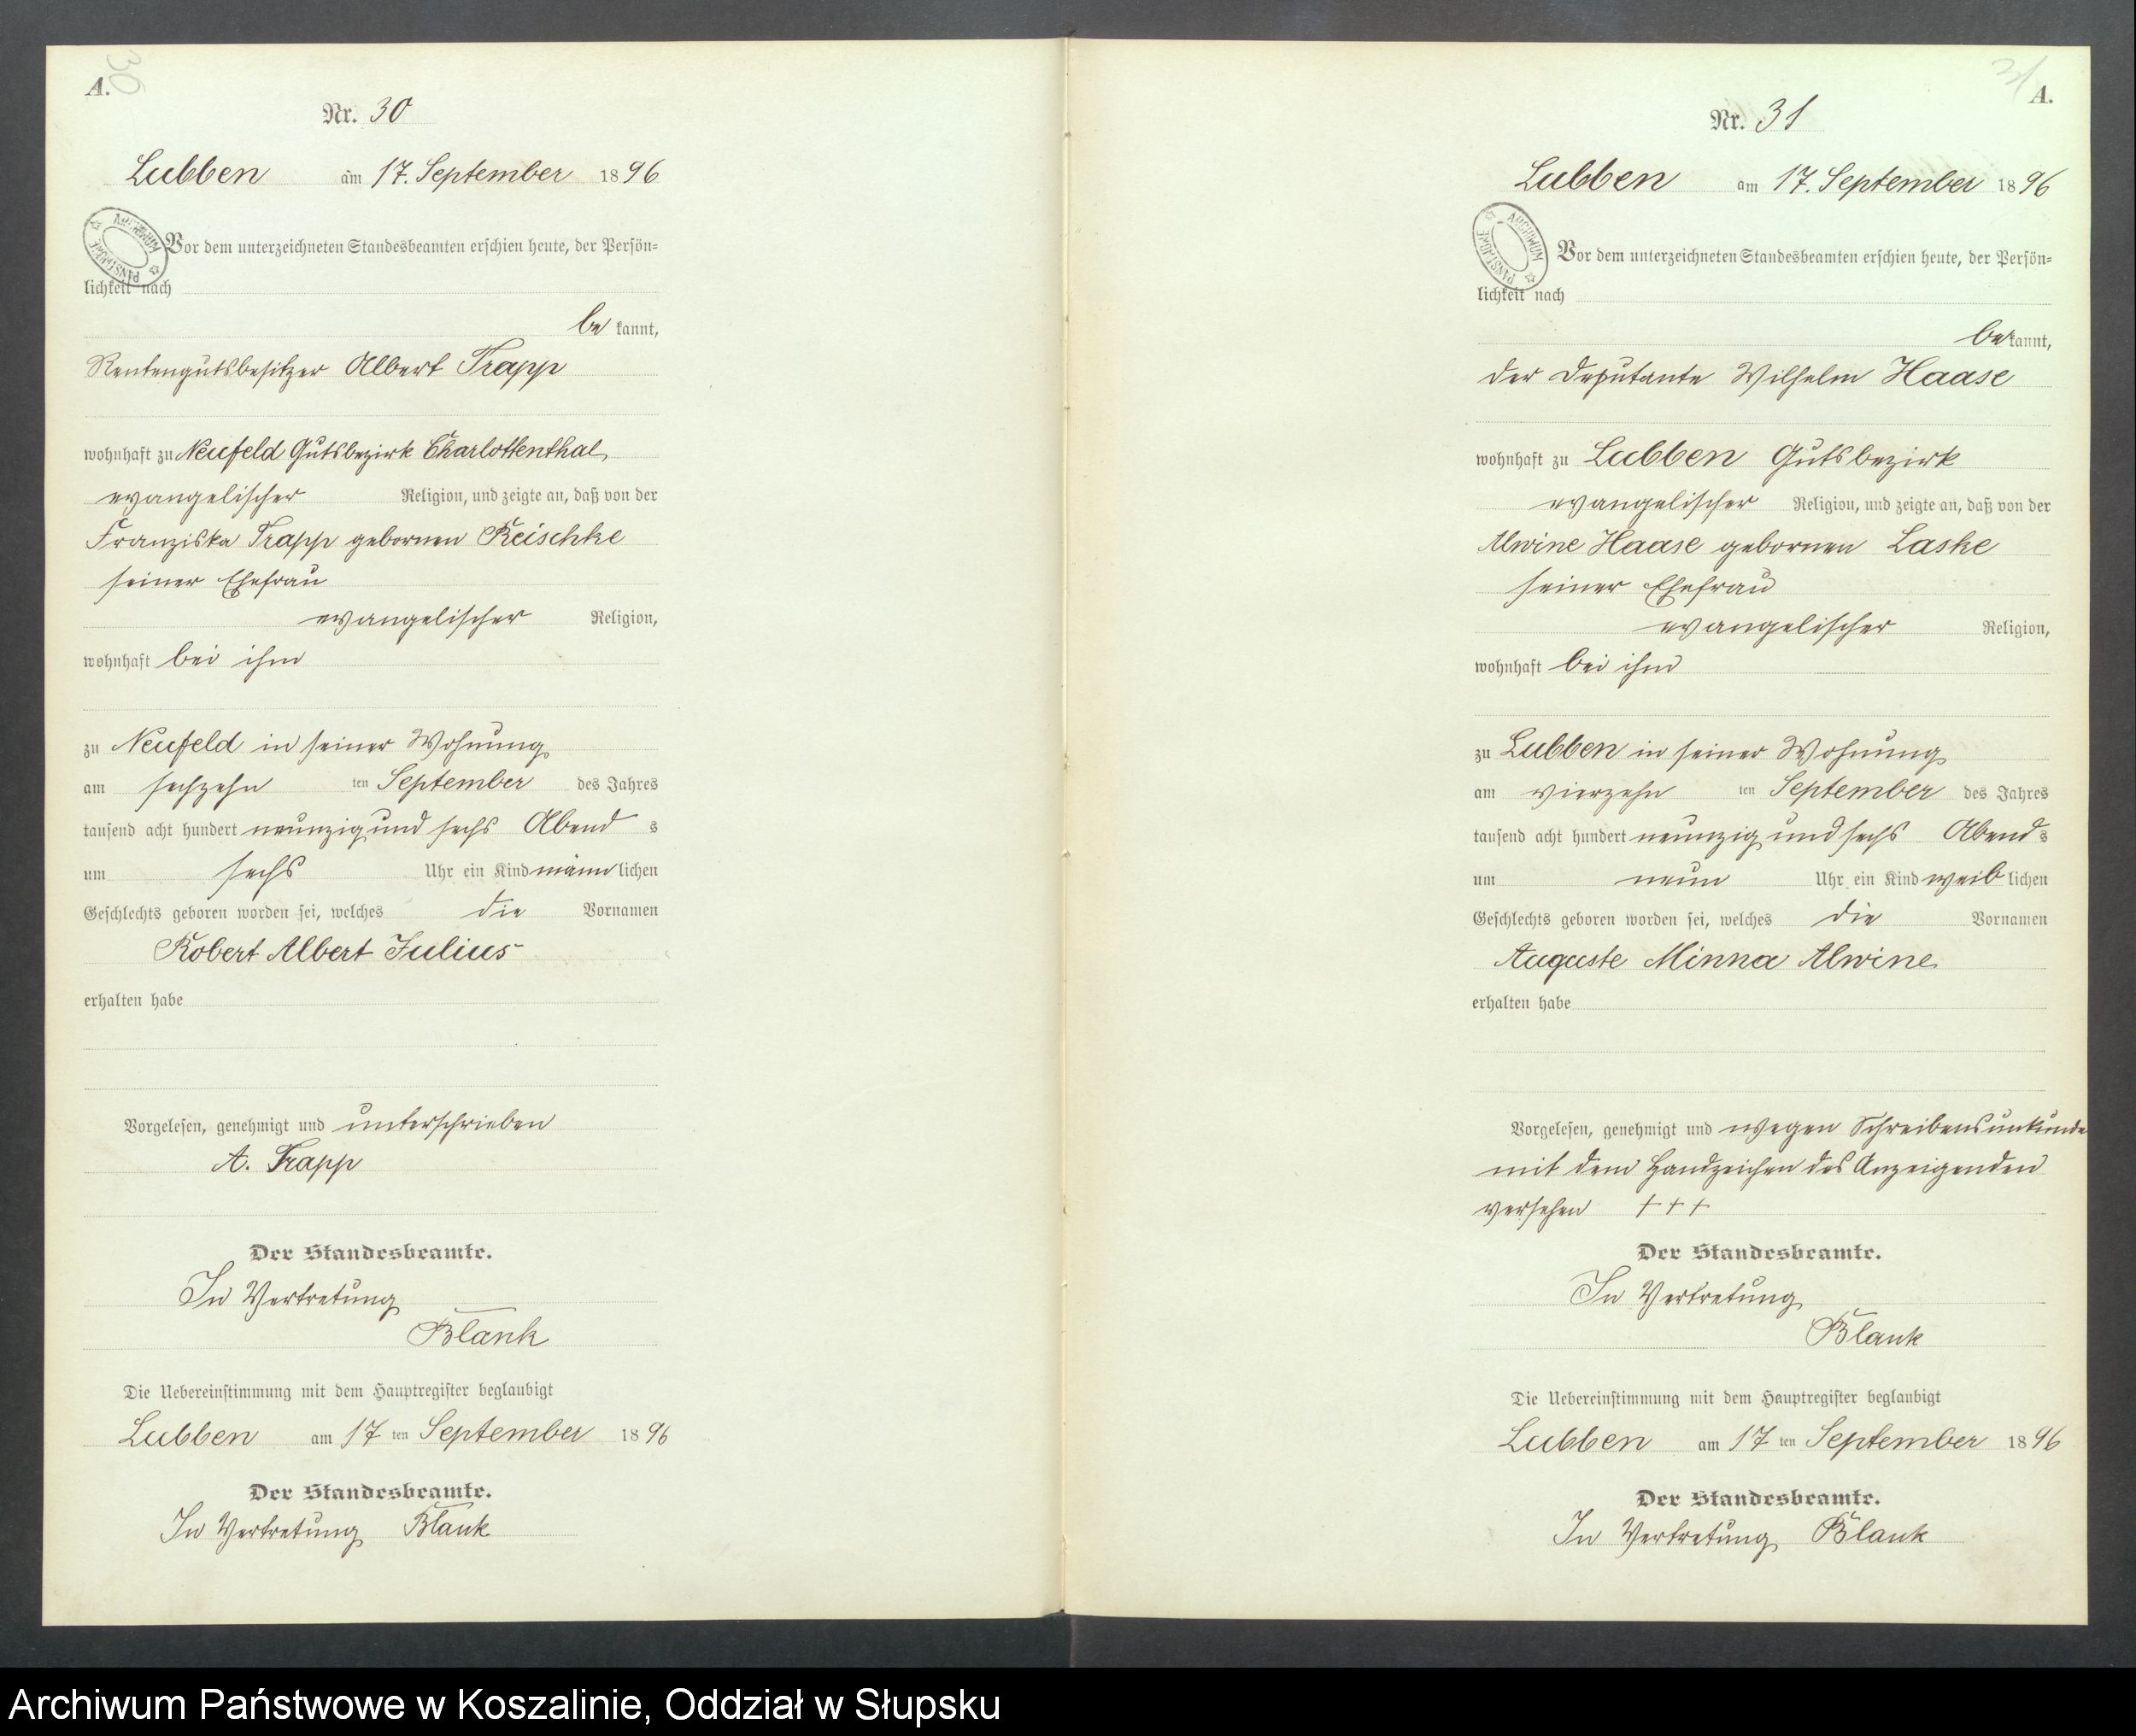 30
A.
Nr. 30
Lubben am 17. September 1896
ARCHIWUM PAŃSTWOWE
Vor dem unterzeichneten Standesbeamten erschien heute, der Persön-
lichkeit nach
be kannt,
Rentengutsbesitzer Albert Trapp
wohnhaft zu Neufeld Gutsbezirk Charlottenthal,
evangelischer Religion, und zeigte an, daß von der
Franziska Trapp gebornen Reischke
seiner Ehefrau
evangelischer Religion,
wohnhaft bei ihm
zu Neufeld in seiner Wohnung
am sechzehn ten September des Jahres
tausend acht hundert neunzig und sechs Abend s
um sechs Uhr ein Kind männlichen
Geschlechts geboren worden sei, welches die Vornamen
Robert Albert Julius
erhalten habe
Vorgelesen, genehmigt und unterschrieben
A. Trapp
Der Standesbeamte.
In Vertretung
Blank
Die Uebereinstimmung mit dem Hauptregister beglaubigt
Lubben am 17 ten September 1896
Der Standesbeamte.
In Vertretung Blank
31
A.
Nr. 31
Lubben am 17. September 1896
ARCHIWUM PAŃSTWOWE
Vor dem unterzeichneten Standesbeamten erschien heute, der Persön-
lichkeit nach
be kannt,
der Deputante Wilhelm Haase
wohnhaft zu Lubben Gutsbezirk
evangelischer Religion, und zeigte an, daß von der
Alwine Haase gebornen Laske
seiner Ehefrau
evangelischer Religion,
wohnhaft bei ihm
zu Lubben in seiner Wohnung
am vierzehn ten September des Jahres
tausend acht hundert neunzig und sechs Abend s
um neun Uhr ein Kind weiblichen
Geschlechts geboren worden sei, welches die Vornamen
Auguste Minna Alwine
erhalten habe
Vorgelesen, genehmigt und wegen Schreibensunkunde
mit dem Handzeichen des Anzeigenden
versehen + + +
Der Standesbeamte.
In Vertretung
Blank
Die Uebereinstimmung mit dem Hauptregister beglaubigt
Lubben am 17 ten September 1896
Der Standesbeamte.
In Vertretung Blank
Archiwum Państwowe w Koszalinie, Oddział w Słupsku